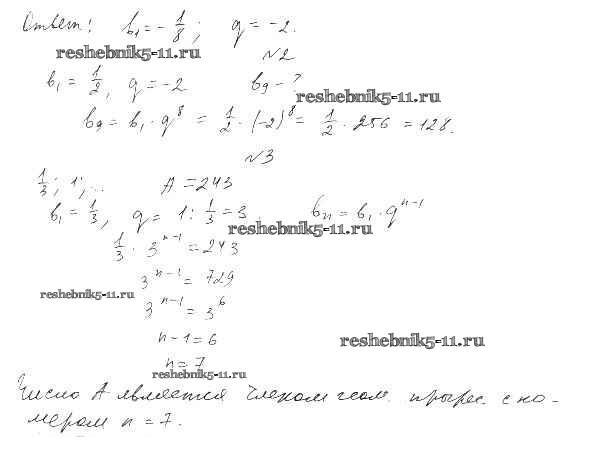 Ответ: b₁ = -1/8; q = -2.
reshebnik5-11.ru
№2
b₁ = 1/2, q = -2 b₉ - ?
reshebnik5-11.ru
b₉ = b₁ · q⁸ = 1/2 · (-2)⁸ = 1/2 · 256 = 128.
№3
1/3; 1; ... A = 243
b₁ = 1/3, q = 1 : 1/3 = 3 bₙ = b₁ · qⁿ⁻¹
reshebnik5-11.ru
1/3 · 3ⁿ⁻¹ = 243
3ⁿ⁻¹ = 729
reshebnik5-11.ru
3ⁿ⁻¹ = 3⁶
n - 1 = 6
reshebnik5-11.ru
n = 7
reshebnik5-11.ru
Число A является членом геом. прогрес. с но-
мером n = 7.